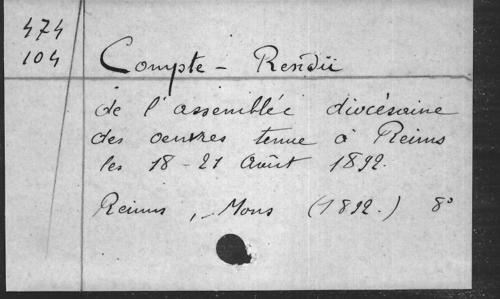 474
104
Compte - Rendü
de l'assemblée diocésaine
des oeuvres tenue à Reims
les 18-21 Août 1892.
Reims, - Mons (1892.) 8°